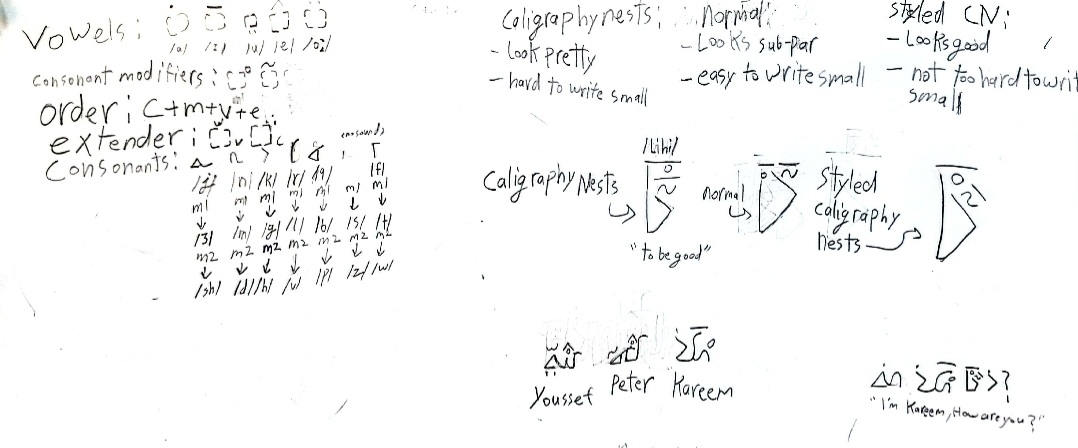 Vowels:
/a/ /i/ /u/ /e/ /oi/
consonant modifiers:
order: C+m+v+e
extender:
Consonants:
/j/ /n/ /k/ /r/ /q/ /f/
m1 m1 m1 m1 m1 m1 m1
/3/ /m/ /g/ /l/ /b/ /s/ /t/
m2 m2 m2 m2 m2 m2 m2
/sh/ /d/ /h/ /v/ /p/ /z/ /w/
Caligraphy nests:
- look pretty
- hard to write small
Normal:
- Looks sub-par
- easy to write small
styled CN:
- Looks good
- not too hard to writ
small
/lihi/
Caligraphy Nests
"to be good"
normal
Styled
caligraphy
nests
Youssef
Peter
Kareem
"I'm Kareem, How are you?"